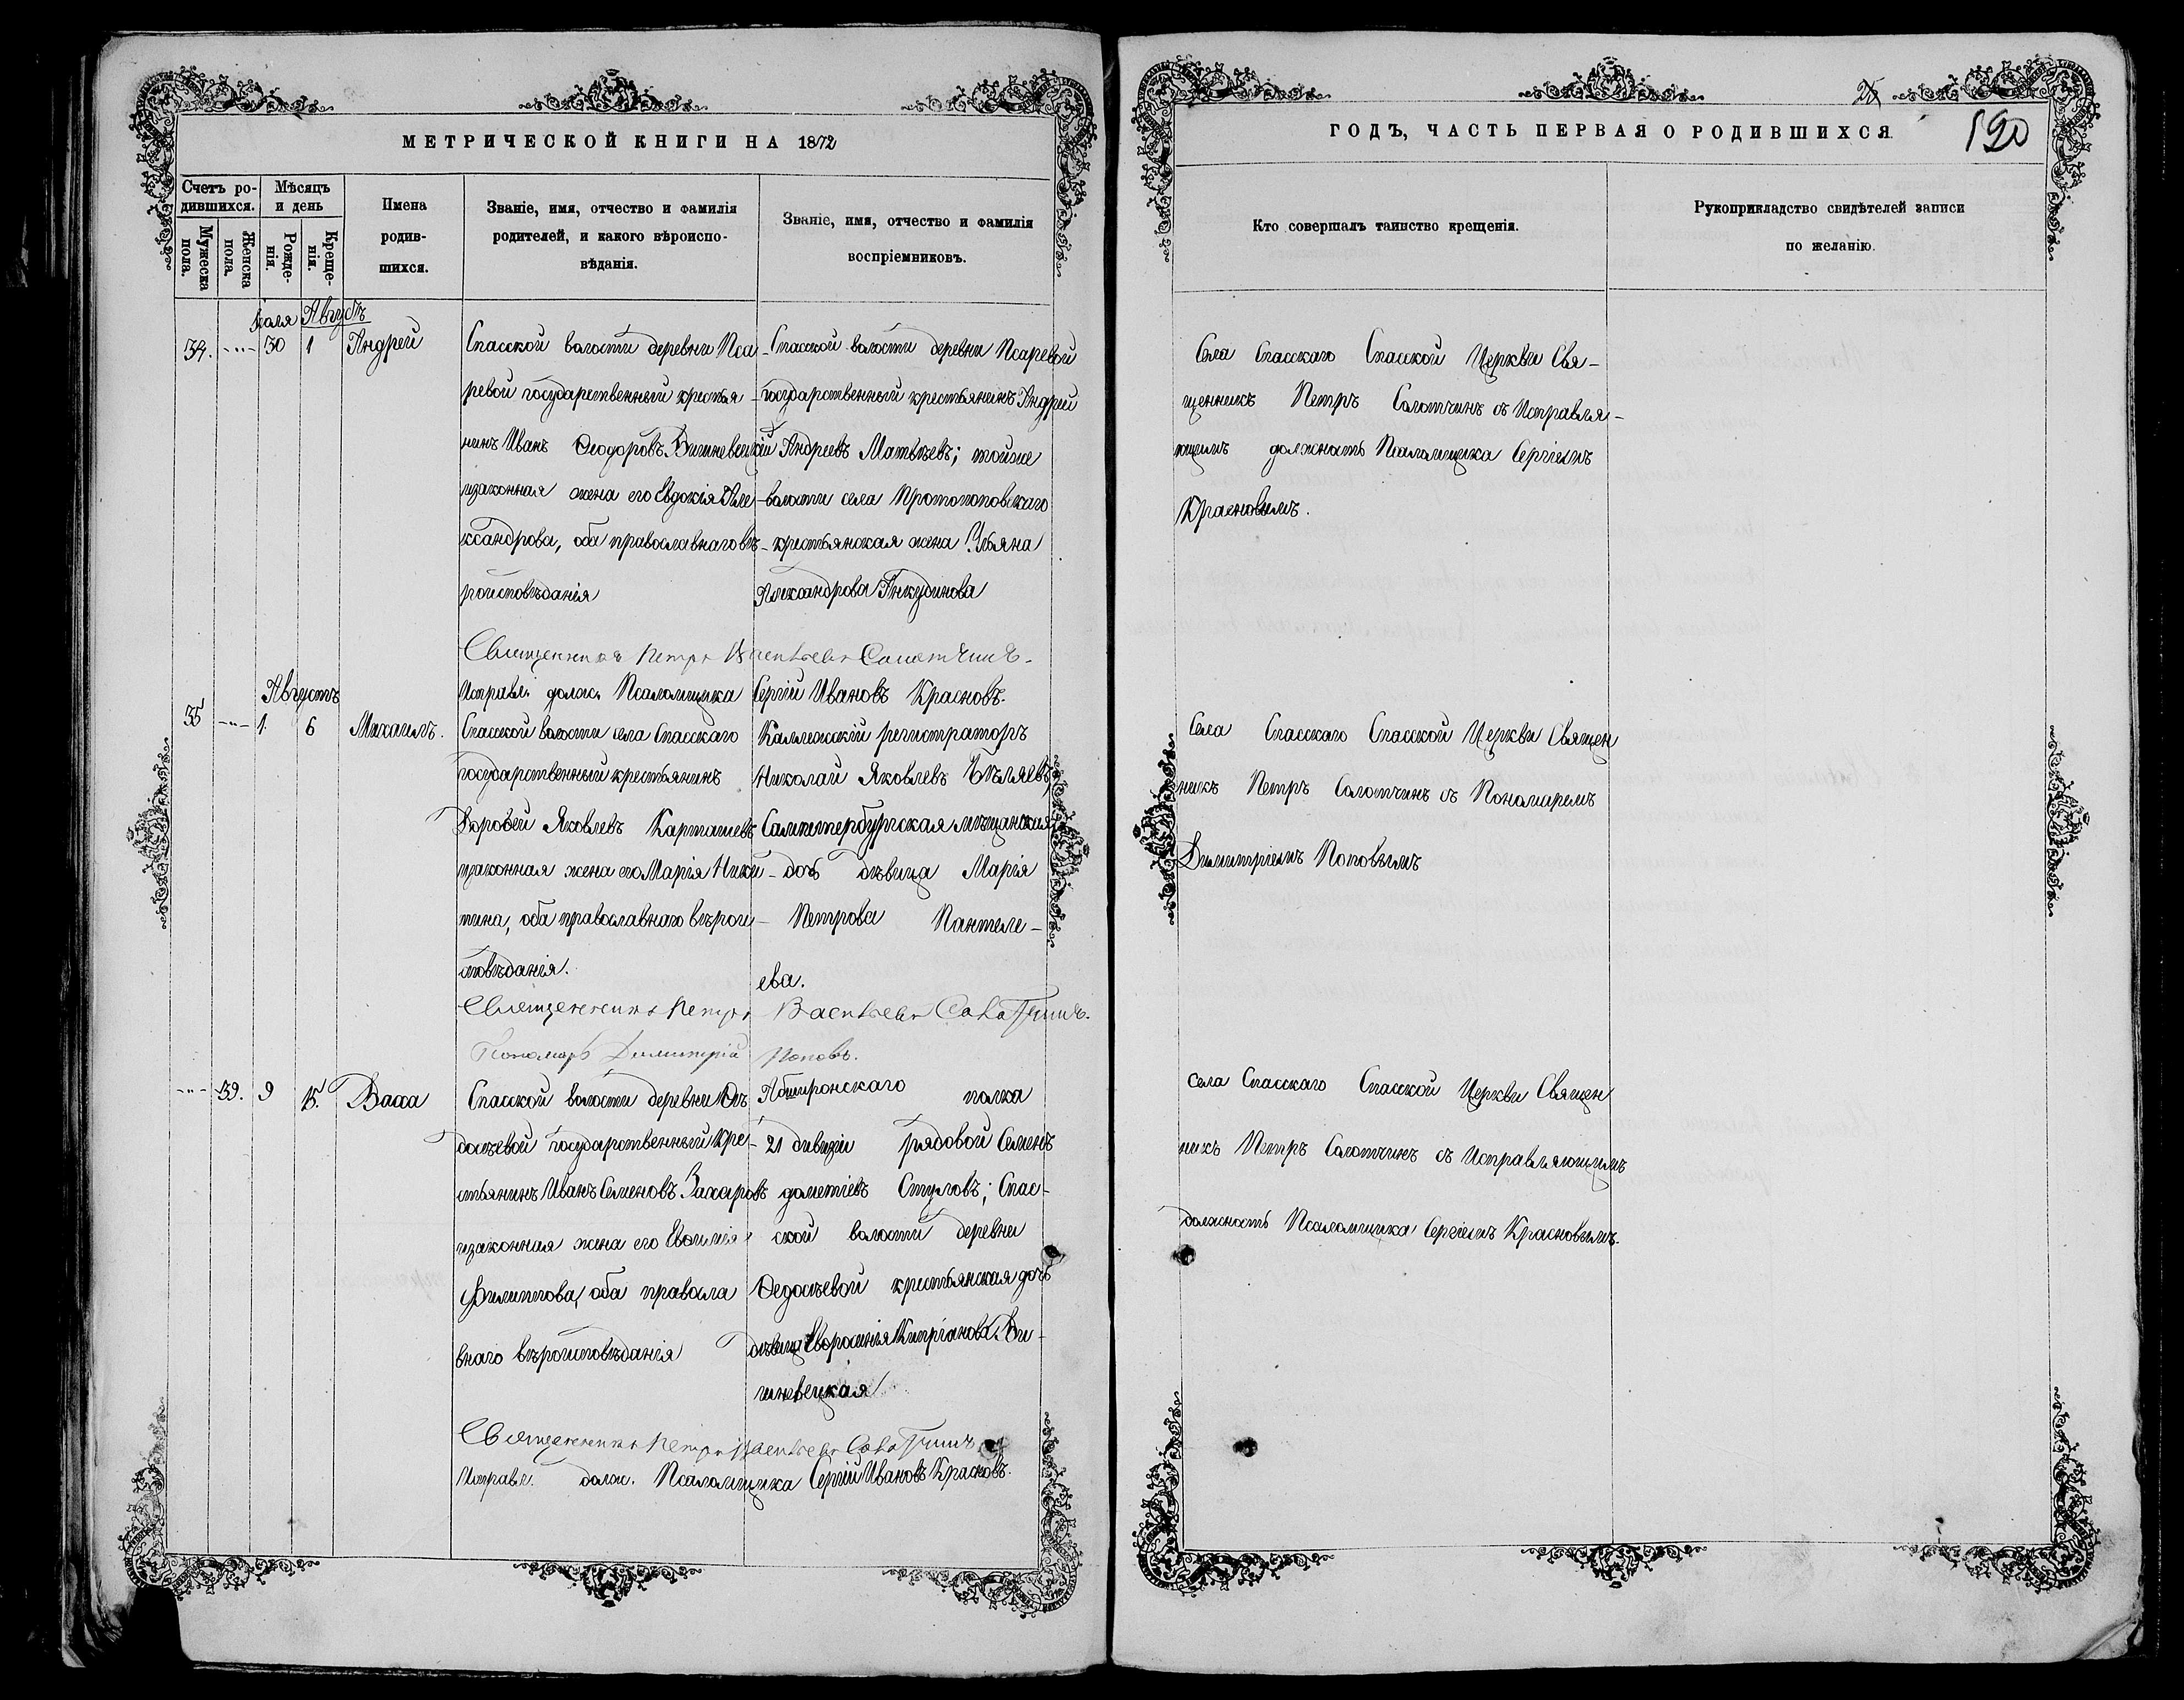 МЕТРИЧЕСКОЙ КНИГИ НА 1872
Счетъ ро-
дившихся.
Мужеска пола.
Женска пола.
Мѣсяцъ
и день
Рожде-
нія.
Креще-
нія.
Имена
родив-
шихся.
Званіе, имя, отчество и фамилія
родителей, и какого вѣроиспо-
вѣданія.
Званіе, имя, отчество и фамилія
воспріемниковъ.
Іюля Августъ
34. -"- 30 1 Андрей
Спасской волости деревни Пса-
ревой государственный крестья-
нинъ Иванъ Ѳеодоровъ Вишневецкій
изаконная жена его Евдокія Але-
ксандрова, оба православнаго вѣ-
роисповѣданія
Спасской волости деревни Псаревой
государственный крестьянинъ Андрей
Андреевъ Матвѣевъ; тойже
волости села Протопоповскаго
крестьянская жена Ульяна
Александрова Анкудинова
Священникъ Петръ Васильевъ Солотчинъ.
Исправл. долж. Псаломщика Сергій Ивановъ Красновъ.
Августъ
35 -"- 1. 6 Михаилъ.
Спасской волости села Спасскаго
государственный крестьянинъ
Дороѳей Яковлевъ Карташевъ
изаконная жена его Марія Ники-
тина, оба православнаго вѣроис-
повѣданія.
Коллежскій регистраторъ
Николай Яковлевъ Бѣляевъ,
Санкпетербургская мѣщанская
дочь дѣвица Марія
Петрова Пантеле-
ева.
Священникъ Петръ Васильевъ Солотчинъ.
Пономарь Димитрій Поповъ.
-"- 39. 9 15. Васса
Спасской волости деревни Ѳе-
досѣевой государственный кре-
стьянинъ Иванъ Семеновъ Захаровъ
изаконная жена его Евѳимія
Филиппова, оба правосла
внаго вѣроисповѣданія
Абширонскаго полка
21 дивизіи рядовой Семенъ
дометіевъ Стуловъ; Спас-
ской волости деревни
Ѳедосѣевой крестьянская дочь
дѣвица Евфросинія Кипріанова Ви-
шневецкая
Священникъ Петръ Васильевъ Солотчинъ
Исправл. долж. Псаломщика Сергій Ивановъ Красновъ.
25
ГОДЪ, ЧАСТЬ ПЕРВАЯ О РОДИВШИХСЯ
190
Кто совершалъ таинство крещенія.
Рукоприкладство свидѣтелей записи
по желанію.
Села Спасскаго Спасской Церкви Свя-
щенникъ Петръ Солотчинъ съ Исправля-
ющимъ должность Псаломщика Сергіемъ
Красновымъ.
Села Спасскаго Спасской Церкви Священ
никъ Петръ Солотчинъ съ Пономаремъ
Димитріемъ Поповымъ
села Спасскаго Спасской Церкви Священ
никъ Петръ Солотчинъ съ Исправляющимъ
должность Псаломщика Сергіемъ Красновымъ.